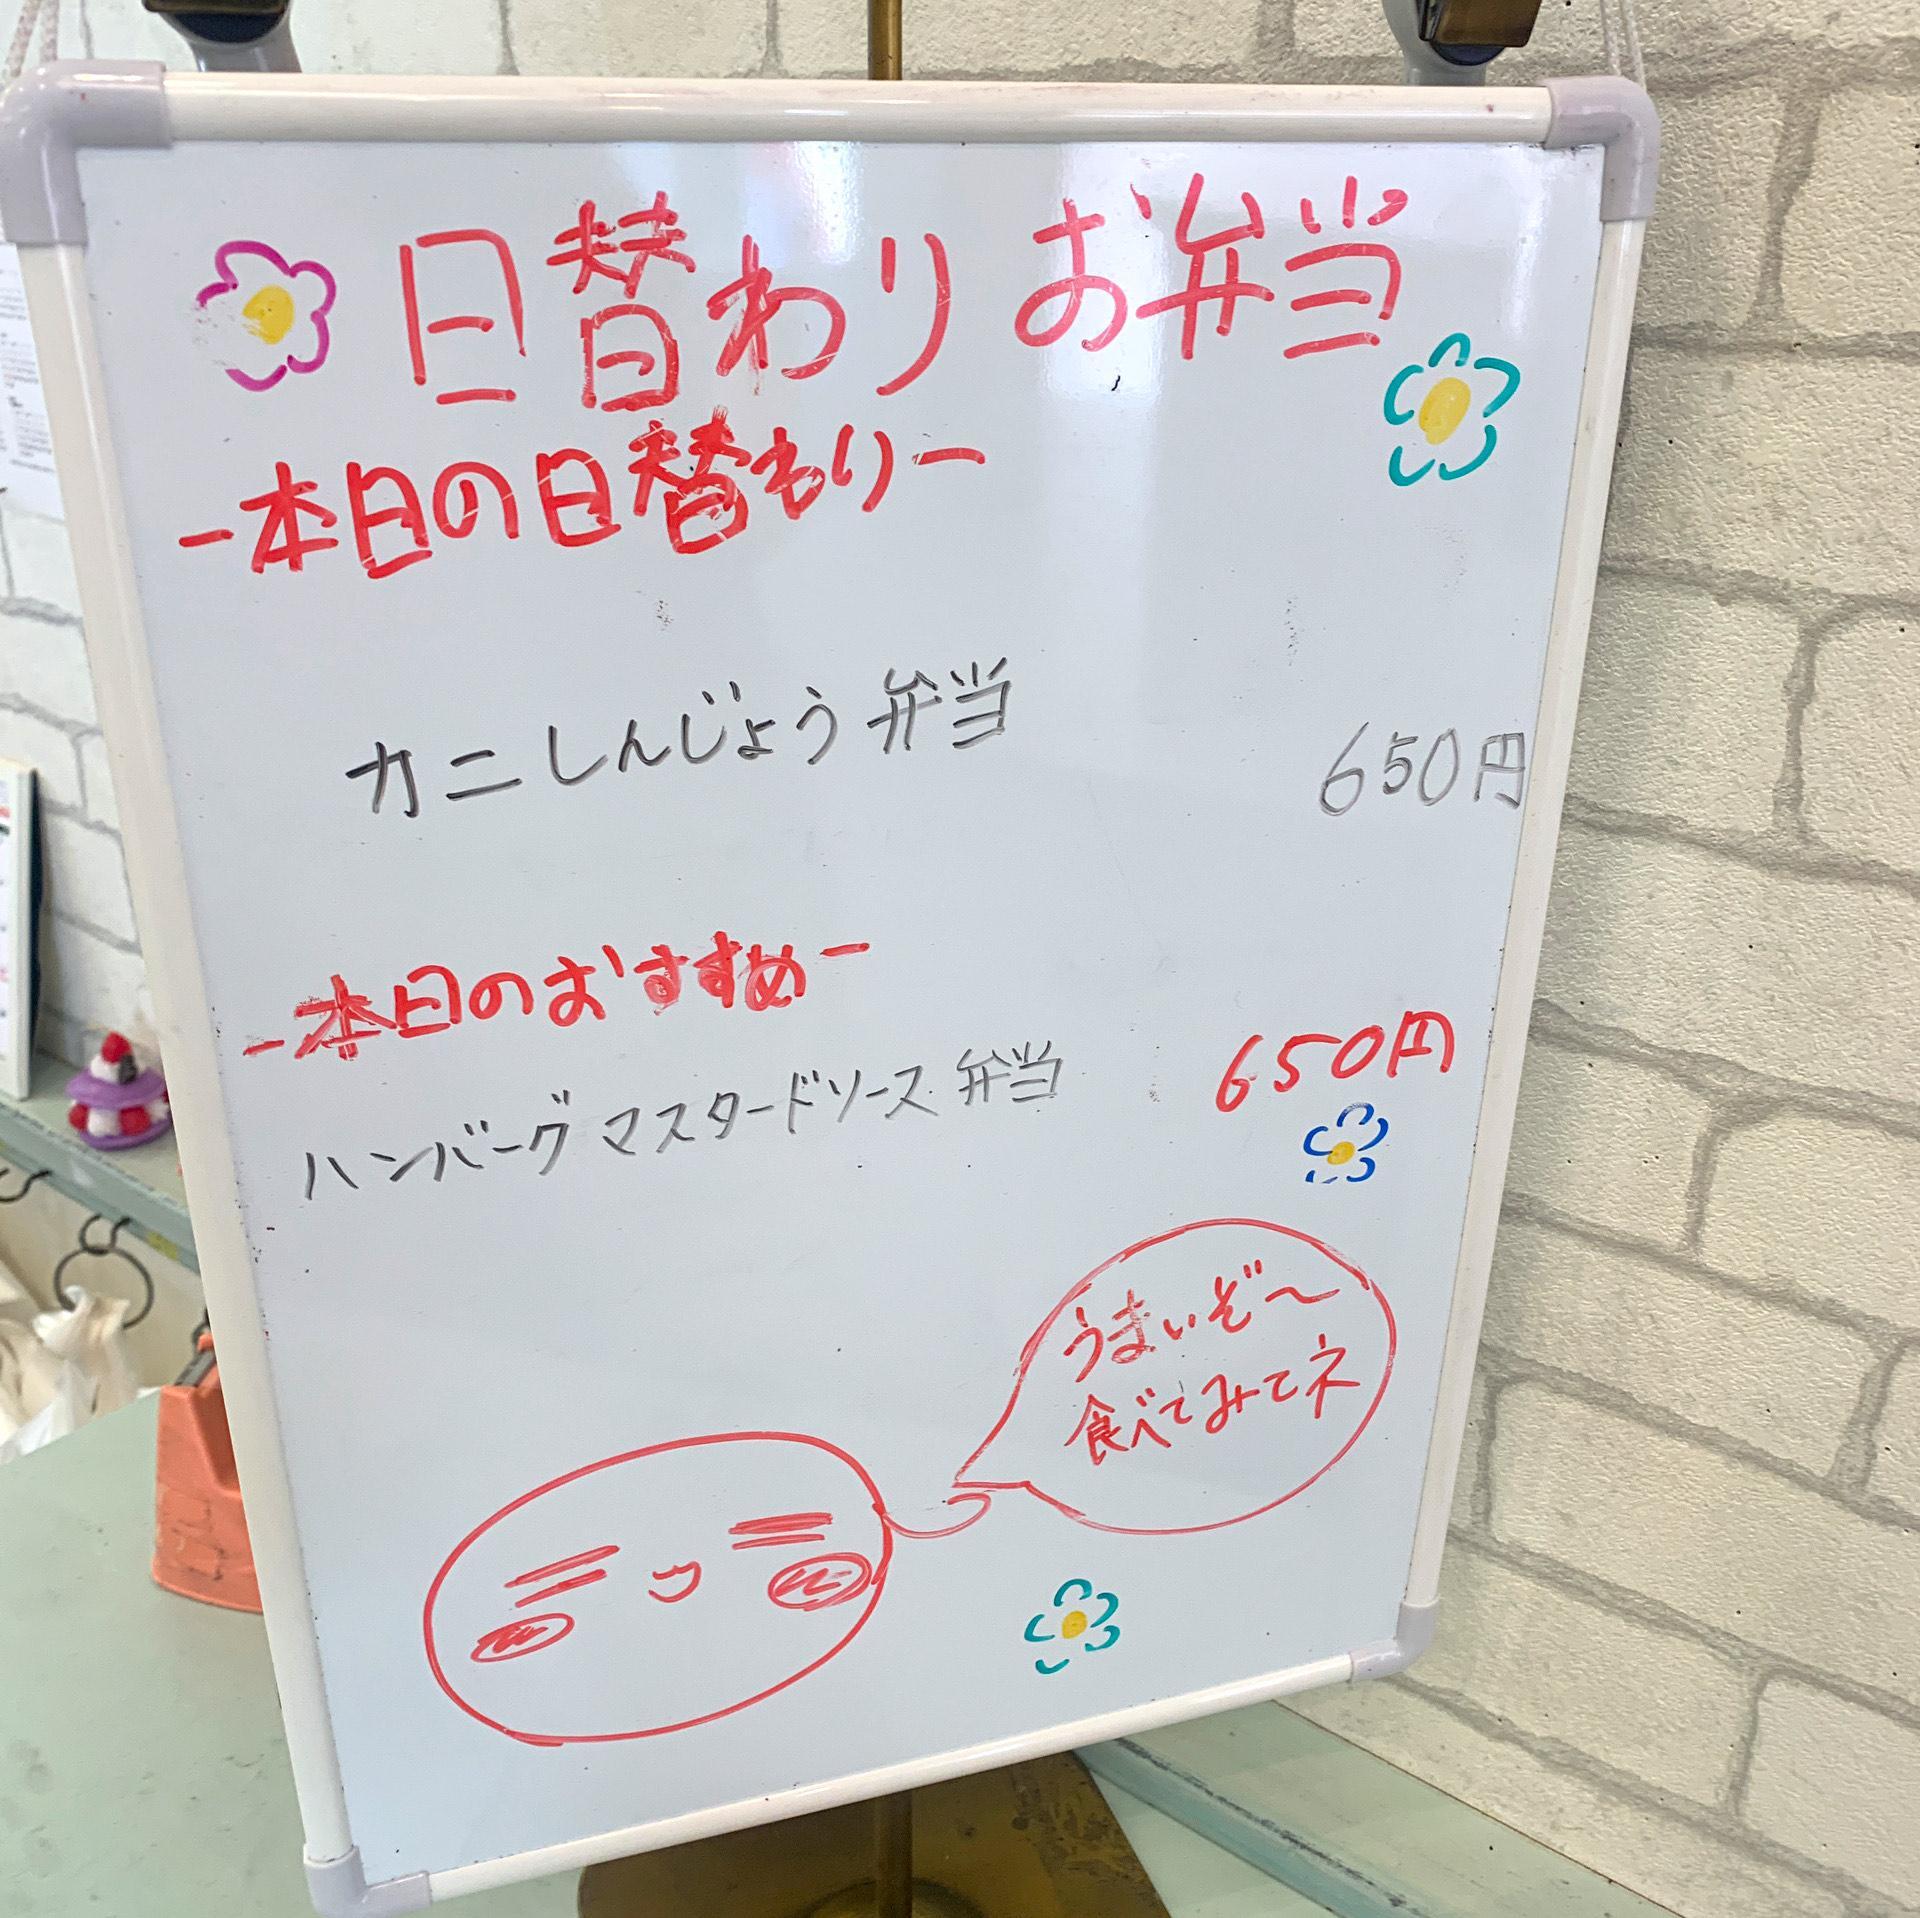 日替わりお弁当
-本日の日替わり-
カニしんじょう弁当 650円
-本日のおすすめ-
ハンバーグマスタードソース弁当 650円
うまいぞ〜
食べてみてネ